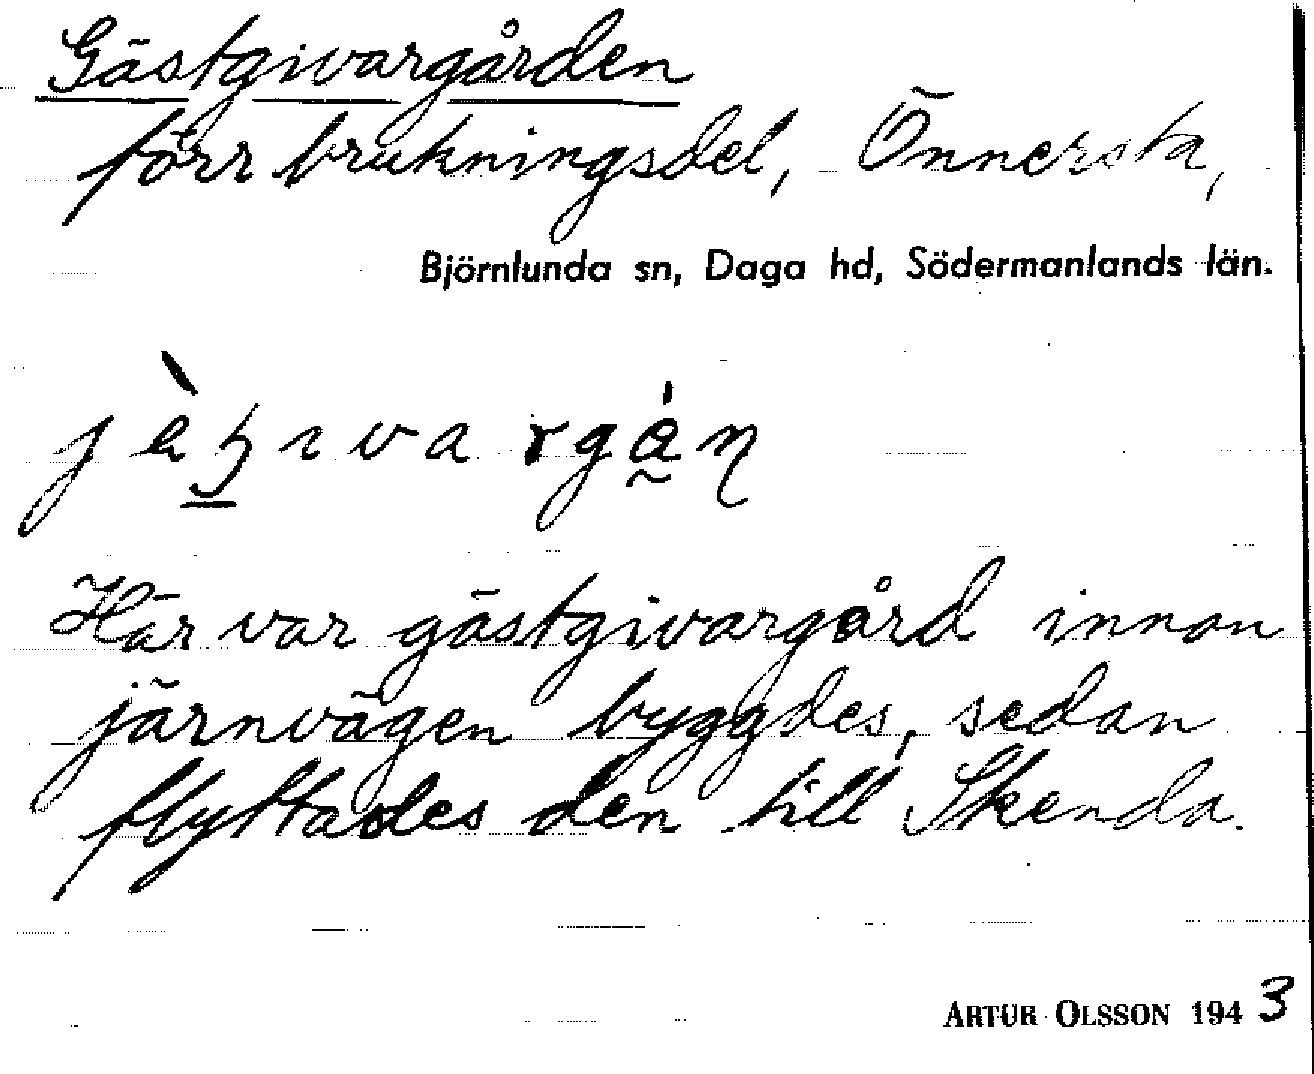 Gästgivargården
förr brukningsdel, Önnersta,
Björnlunda sn, Daga hd, Södermanlands län.
Här var gästgivargård innan
järnvägen byggdes, sedan
flyttades den till Skenda.
ARTUR OLSSON 1943